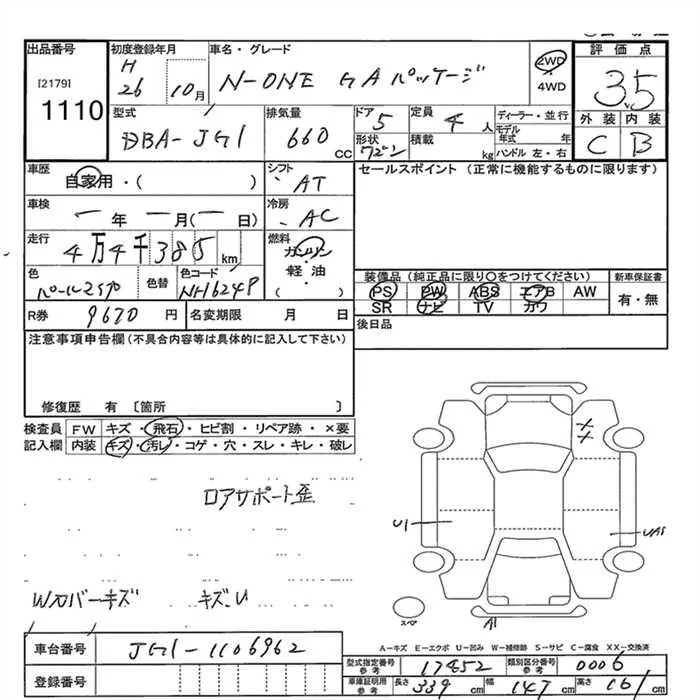 出品番号
[2179]
1110
初度登録年月
H
26 10月
車名・グレード
N-ONE G Aパッケージ
2WD
・
4WD
評 価 点
3.5
外 装 内 装
C B
型式
DBA-JG1
排気量
660 CC
ドア 5
形状 ワゴン
定員 4 人
積載 kg
ディーラー・並 行
モデル年式 年
ハンドル 左・右
車歴
自家用・( )
シフト
AT
車検
ー 年 ー 月(ー 日)
冷房
AC
走行
4万4千385 km
燃料
ガソリン
・
軽 油
( )
色
パールスミヤ
色替
色コード
NH624P
R券 9670 円
名変期限 月 日
セールスポイント (正常に機能するものに限ります)
装備品 (純正品に限り〇をつけてください)
PS PW ABS エアB AW
SR ナビ TV カワ
新車保証書
有・無
後日品
注意事項申告欄(不具合内容等は具体的に記入して下さい)
修復歴 有 〔箇所 〕
検査員 FW キズ・飛石・ヒビ割・リペア跡・×要
記入欄 内装 キズ・汚レ・コゲ・穴・スレ・キレ・破レ
ロアサポート歪
W/カバーキズ キズ.U
X
X
U1
UA1
A1
スペア
A－キズ E－エクボ U－凹み W－補修跡 S－サビ C－腐食 XX－交換済
車台番号 JG1-1106962
登録番号
型式指定番号 参考 17452
類別区分番号 参考 0006
車庫証明用 参考 長さ 339 cm 幅 147 cm 高さ 161 cm